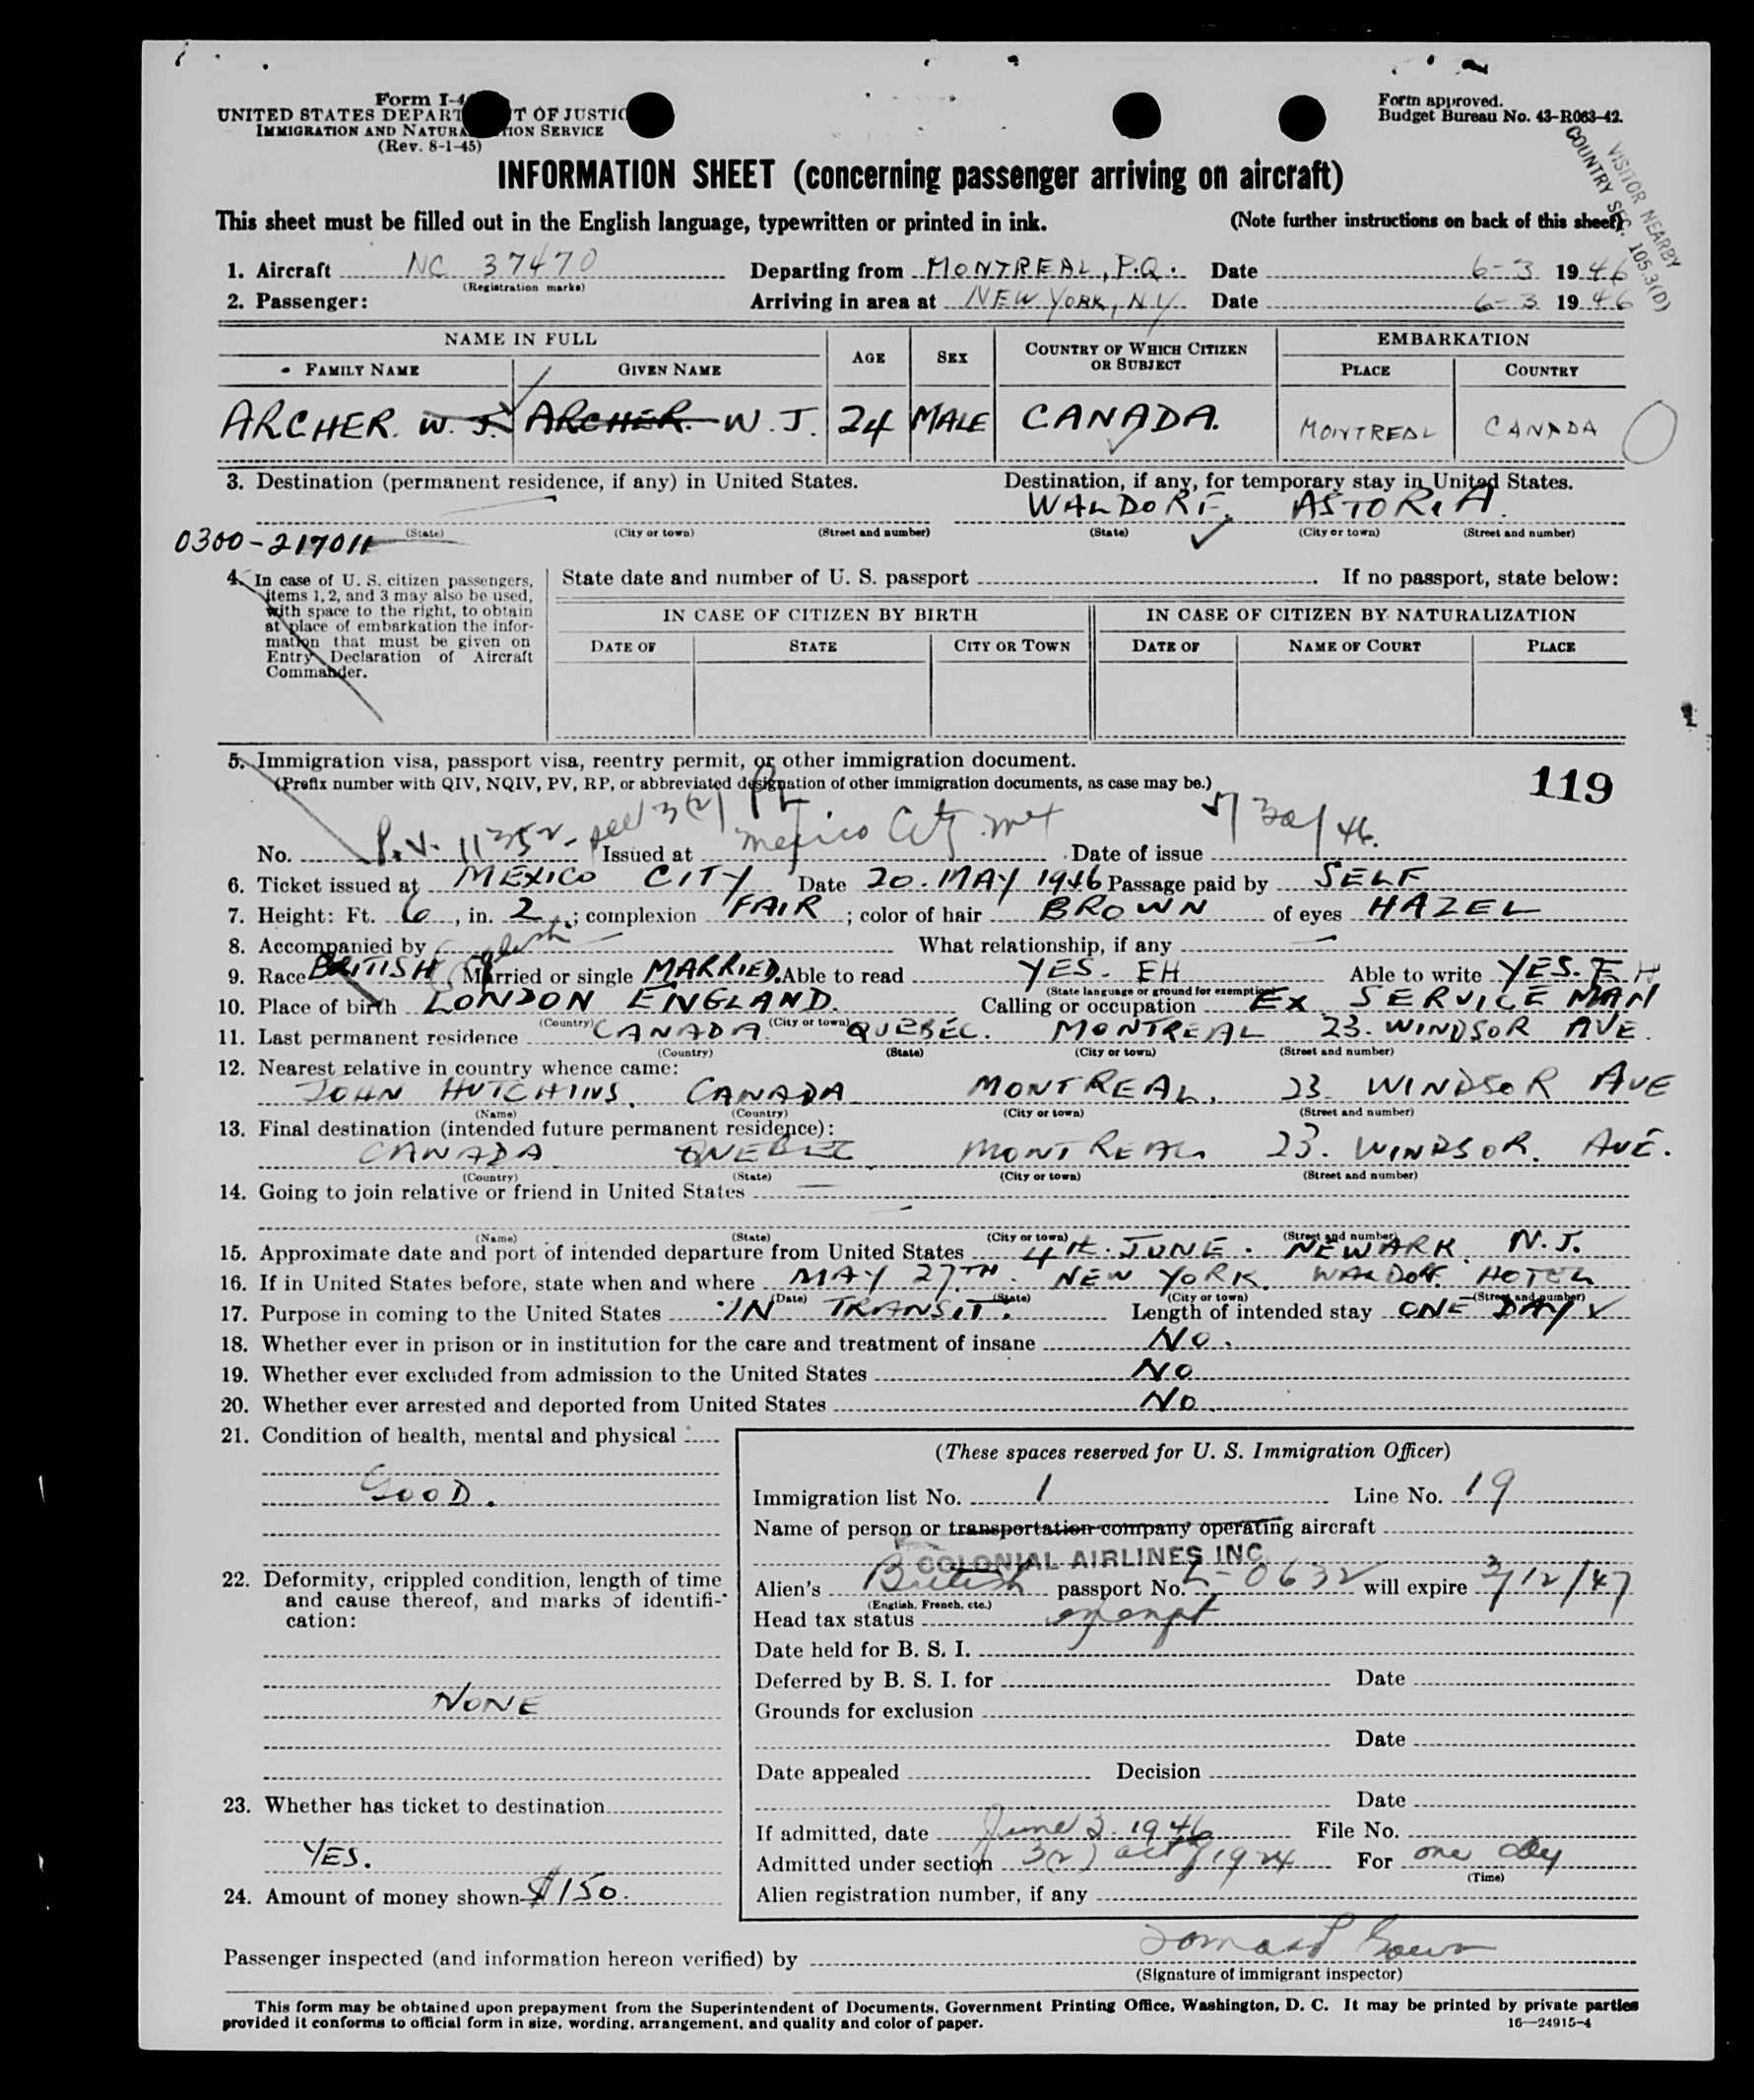 Form I-4
UNITED STATES DEPART T OF JUSTIC
IMMIGRATION AND NATURA TION SERVICE
(Rev. 8-1-45)
Form approved.
Budget Bureau No. 43-R063-42.
VISITOR NEARBY
COUNTRY SEC. 105.3(D)
INFORMATION SHEET (concerning passenger arriving on aircraft)
This sheet must be filled out in the English language, typewritten or printed in ink. (Note further instructions on back of this sheet)
1. Aircraft NC 37470 Departing from MONTREAL, P.Q. Date 6-3 1946
(Registration marks)
2. Passenger: Arriving in area at NEW YORK, NY Date 6-3 1946
NAME IN FULL AGE SEX COUNTRY OF WHICH CITIZEN OR SUBJECT EMBARKATION
FAMILY NAME GIVEN NAME PLACE COUNTRY
ARCHER. W. J. ARCHER. W. J. 24 MALE CANADA. MONTREAL CANADA
3. Destination (permanent residence, if any) in United States. Destination, if any, for temporary stay in United States.
WALDORF, ASTORIA.
(State) (City or town) (Street and number) (State) (City or town) (Street and number)
0300-217011
4. In case of U. S. citizen passengers, items 1, 2, and 3 may also be used, with space to the right, to obtain at place of embarkation the information that must be given on Entry Declaration of Aircraft Commander.
State date and number of U. S. passport If no passport, state below:
IN CASE OF CITIZEN BY BIRTH IN CASE OF CITIZEN BY NATURALIZATION
DATE OF STATE CITY OR TOWN DATE OF NAME OF COURT PLACE
5. Immigration visa, passport visa, reentry permit, or other immigration document.
(Prefix number with QIV, NQIV, PV, RP, or abbreviated designation of other immigration documents, as case may be.)
119
No. P.V. 11352 - 3(2) Issued at Mexico City Mex Date of issue 5/30/46.
6. Ticket issued at MEXICO CITY Date 20. MAY 1946 Passage paid by SELF
7. Height: Ft. 6, in. 2; complexion FAIR; color of hair BROWN of eyes HAZEL
8. Accompanied by What relationship, if any —
English
9. Race BRITISH Married or single MARRIED. Able to read YES - EH Able to write YES. EH
(State language or ground for exemption)
10. Place of birth LONDON ENGLAND. Calling or occupation EX SERVICE MAN
(Country) (City or town)
11. Last permanent residence CANADA QUEBEC. MONTREAL 23. WINDSOR AVE.
(Country) (State) (City or town) (Street and number)
12. Nearest relative in country whence came:
JOHN HUTCHINS. CANADA MONTREAL. 23 WINDSOR AVE
(Name) (Country) (City or town) (Street and number)
13. Final destination (intended future permanent residence):
CANADA QUEBEC MONTREAL 23. WINDSOR. AVE.
(Country) (State) (City or town) (Street and number)
14. Going to join relative or friend in United States —
(Name) (State) (City or town) (Street and number)
15. Approximate date and port of intended departure from United States 4th. JUNE. NEWARK. N.J.
16. If in United States before, state when and where MAY 27TH. NEW YORK. WALDOR. HOTEL
(Date) (State) (City or town) (Street and number)
17. Purpose in coming to the United States IN TRANSIT. Length of intended stay ONE DAY
18. Whether ever in prison or in institution for the care and treatment of insane NO.
19. Whether ever excluded from admission to the United States NO
20. Whether ever arrested and deported from United States NO.
21. Condition of health, mental and physical
GOOD.
22. Deformity, crippled condition, length of time and cause thereof, and marks of identification:
NONE
23. Whether has ticket to destination
YES.
24. Amount of money shown $150.
(These spaces reserved for U. S. Immigration Officer)
Immigration list No. 1 Line No. 19
Name of person or transportation company operating aircraft
COLONIAL AIRLINES INC
Alien's British passport No. L-0632 will expire 3/12/47
(English, French, etc.)
Head tax status exempt
Date held for B. S. I.
Deferred by B. S. I. for Date
Grounds for exclusion
Date
Date appealed Decision
Date
If admitted, date June 3. 1946 File No.
Admitted under section 3(2) act of 1924 For one day
(Time)
Alien registration number, if any
Passenger inspected (and information hereon verified) by
(Signature of immigrant inspector)
This form may be obtained upon prepayment from the Superintendent of Documents, Government Printing Office, Washington, D. C. It may be printed by private parties
provided it conforms to official form in size, wording, arrangement, and quality and color of paper. 16—24915-4